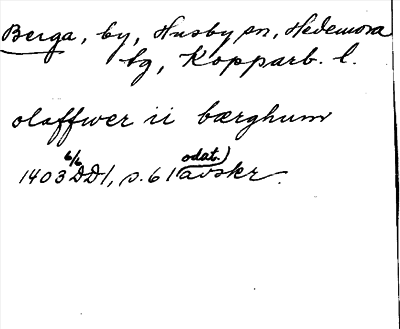 Berga, by, Husby sn, Hedemora
tg, Kopparb. l.
olaffwer ii bærghum
1403 6/6 DD1, s. 61 (odat.) avskr.